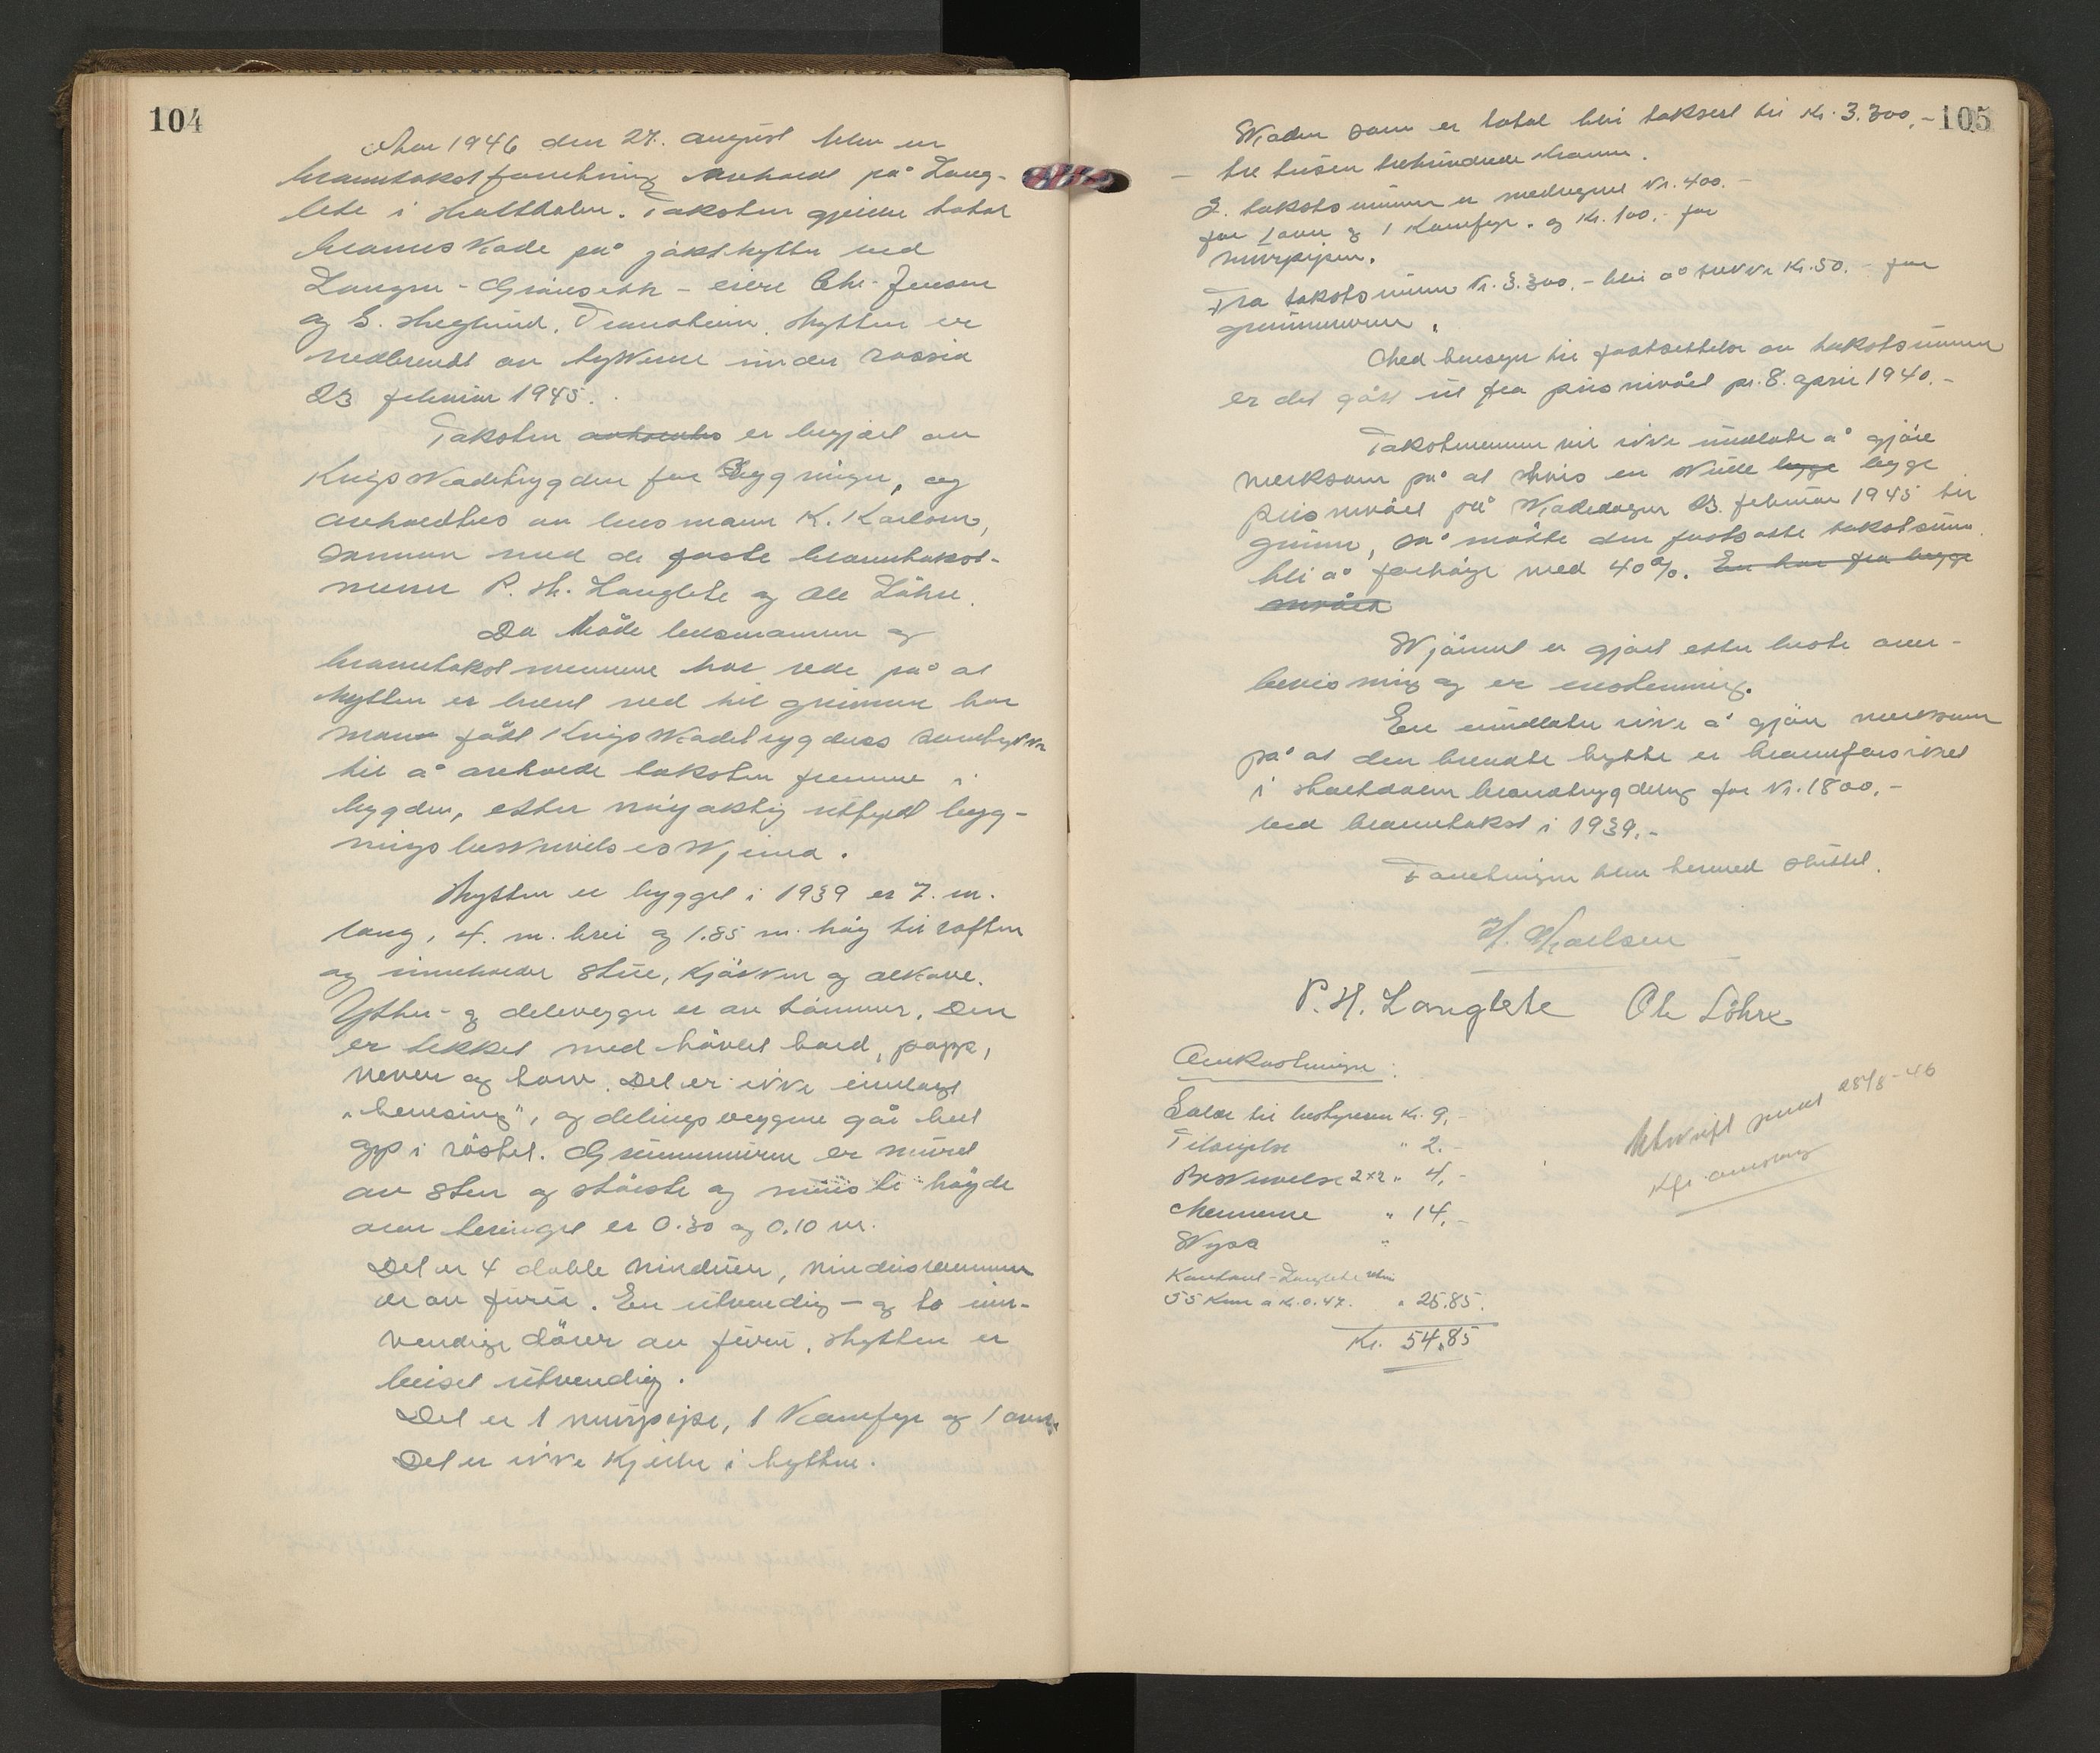 104
Aar 1946 den 27. august blev en
branntakstforretning avholdt på Lang-
lete i Haltdalen. Taksten gjelder total
brannskade på jakthytten ved
Langen - Grönsetch - eiere Chr. Jenson
og E. Heglund, Trondheim. Hytten er
nedbrendt av tyskerne under rassia
23 februar 1945.
Taksten avholdes er begjært av
Krigsskadetrygden for Bygninger, og
avholdtes av lensmann K. Karlsen,
sammen med de faste branntakst-
menn P. H. Langlete og Ole Löhre.
Da både lensmannen og
branntakstmennene har rede på at
hytten er brent ned til grunnen har
man fått Krigsskadetrygdens samtykke
til å avholde taksten hjemme i
bygden, etter nöyaktig utfyldt byg-
ningsbeskrivelsesskjema.
Hytten er bygget i 1939 er 7. m.
lang, 4. m. brei og 1.85 m. höy til raften
og inneholder stue, kjökken og alkove.
Ytter- og delevegger er av tömmer. Den
er tekket med hövlet bord, papp,
never og torv. Det er ikke innlagt
"hemsing", og delingsveggene går helt
opp i röstet. Grunnmuren er muret
av sten og störste og minste höyde
over terrenget er 0.30 og 0.10 m.
Det er 4 doble vinduer, vindusrammer
er av furu. En utvendig - og to inn-
vendige dörer av furu. Hytten er
beiset utvendig.
Det er 1 murpipe, 1 kamfyr og 1 ovn.
Det er ikke kjeller i hytten.
105
Skaden som er total blir taksert til Kr. 3.300,-
- tre tusen trehundrede kroner.
I takstsummen er medregnet Kr. 400.-
for 1 ovn og 1 Kamfyr. og Kr. 100.- for
murpipen.
Fra takstsummen Kr. 3.300.- blir å trekke Kr. 50.- for
grunnmuren.
Med hensyn til fastsettelse av takstsummen
er det gått ut fra prisnivået pr. 8. april 1940.-
Takstmennene vil ikke undlate å gjöre
merksom på at hvis en skulde bygge legge
prisnivået på skadedagen 23. februar 1945 til
grunn, så måtte den fastsatte takstsum
bli å forhöye med 40%. En har fra begge
nivået
Skjönnet er gjort etter beste over-
bevisning og er enstemmig.
En undlater ikke å gjöre merksom
på at den brendte hytte er brannforsikret
i Haltdalen branntrygdelag for Kr. 1800,-
ved branntakst i 1939.-
Forretningen blev hermed sluttet.
K. Karlsen
P. H. Langlete Ole Löhre
Omkostninger:
Salær til bestyreren Kr. 9,-
Tilsigelse " 2.-
Beskrivelse 2x2 " 4,-
Mennene " 14,-
Skyss "
- Langlete
55 Km a Kr. 0.47. " 25.85.
Kr. 54.85
Utskrift sendt 28/8-46